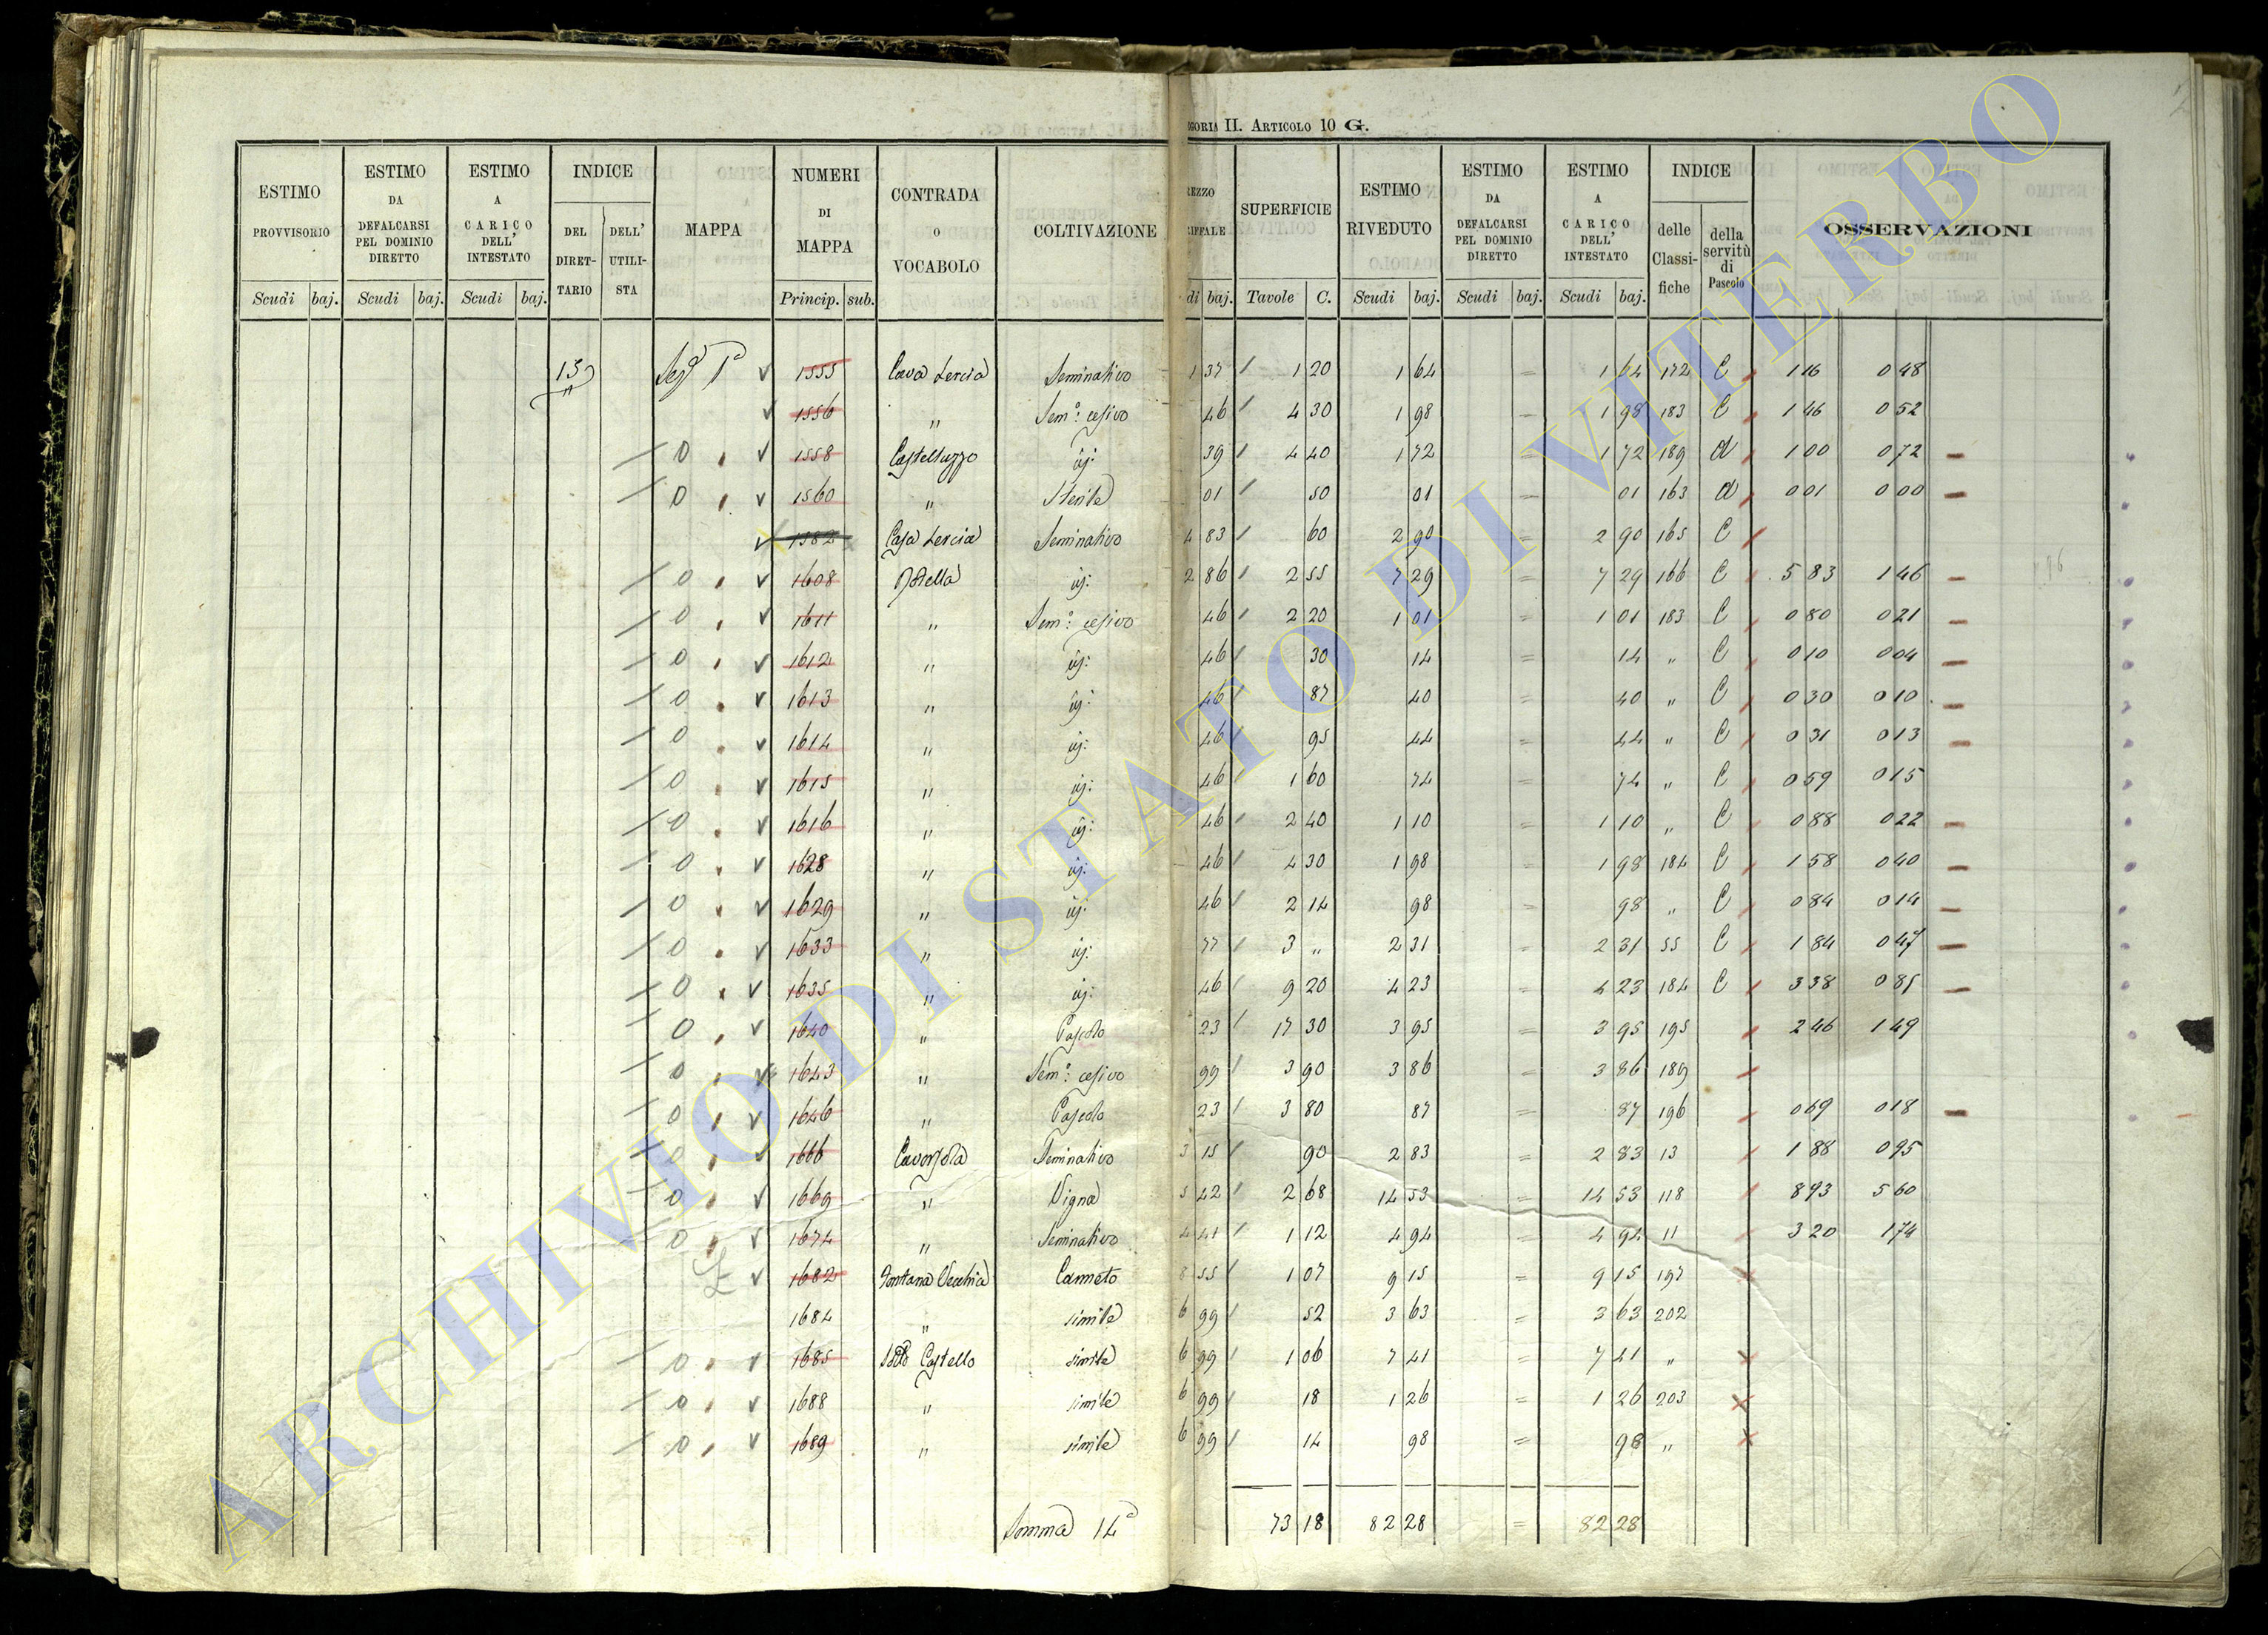 GORIA II. ARTICOLO 10 G.
ESTIMO PROVVISORIO | ESTIMO DA DEFALCARSI PEL DOMINIO DIRETTO | ESTIMO A CARICO DELL' INTESTATO | INDICE DEL DIRET-TARIO | DELL' UTILI-STA | MAPPA | NUMERI DI MAPPA | CONTRADA O VOCABOLO | COLTIVAZIONE | REZZO RIFFALE | SUPERFICIE | ESTIMO RIVEDUTO | ESTIMO DA DEFALCARSI PEL DOMINIO DIRETTO | ESTIMO A CARICO DELL' INTESTATO | INDICE delle Classi-fiche | della servitù di Pascolo | OSSERVAZIONI
Scudi baj. | Scudi baj. | Scudi baj. | Princip. sub. | di baj. | Tavole C. | Scudi baj. | Scudi baj. | Scudi baj.
13 " Seg. 1ª v 1555 Cava Lercia Seminativo 1 37 / 1 20 1 64 = 1 64 172 C 1 16 0 48
v 1556 " Sem.º cesivo 46 / 4 30 1 98 = 1 98 183 C 1 46 0 52
/ 0 v 1558 Castelluzzo id: 39 / 4 40 1 72 = 1 72 189 d 1 00 0 72 –
/ 0 v 1560 " Sterile 01 / 50 01 = 01 163 d 0 01 0 00 –
v 1582 Casa Lercia Seminativo 4 83 / 60 2 90 = 2 90 165 C
/ 0 v 1608 Stella id: 2 86 / 2 55 7 29 = 7 29 166 C 5 83 1 46 –
/ 0 v 1611 " Sem.º cesivo 46 / 2 20 1 01 = 1 01 183 C 0 80 0 21 –
/ 0 v 1612 " id: 46 / 30 14 = 14 " C 0 10 0 04 –
/ 0 v 1613 " id: 46 / 87 40 = 40 " C 0 30 0 10 –
/ 0 v 1614 " id: 46 / 95 44 = 44 " C 0 31 0 13 –
/ 0 v 1615 " id: 46 / 1 60 74 = 74 " C 0 59 0 15
/ 0 v 1616 " id: 46 / 2 40 1 10 = 1 10 " C 0 88 0 22 –
/ 0 v 1628 " id: 46 / 4 30 1 98 = 1 98 184 C 1 58 0 40 –
/ 0 v 1629 " id: 46 / 2 14 98 = 98 " C 0 84 0 14 –
/ 0 v 1633 " id: 77 / 3 " 2 31 = 2 31 55 C 1 84 0 47 –
/ 0 v 1635 " id: 46 / 9 20 4 23 = 4 23 184 C 3 38 0 85 –
/ 0 v 1640 " Pascolo 23 / 17 30 3 95 = 3 95 195 2 46 1 49
/ 0 v 1643 " Sem.º cesivo 99 / 3 90 3 86 = 3 86 189
/ 0 v 1646 " Pascolo 23 / 3 80 87 = 87 196 0 69 0 18 –
/ 0 v 1666 Seminativo 3 15 / 90 2 83 = 2 83 13 1 88 0 95
/ 0 v 1669 " Vigna 5 42 / 2 68 14 53 = 14 53 118 8 93 5 60
0 v 1674 " Seminativo 4 41 / 1 12 4 94 = 4 94 11 3 20 1 74
v 1682 Fontana Vecchia Canneto 8 55 / 1 07 9 15 = 9 15 197 x
1684 " simile 6 99 / 52 3 63 = 3 63 202
/ 0 v 1685 Sotto Castello simile 6 99 / 1 06 7 41 = 7 41 " x
/ 0 v 1688 " simile 6 99 / 18 1 26 = 1 26 203 x
/ 0 v 1689 " simile 6 99 / 14 98 = 98 " x
Somma 14ª 73 18 82 28 = 82 28
ARCHIVIO DI STATO DI VITERBO